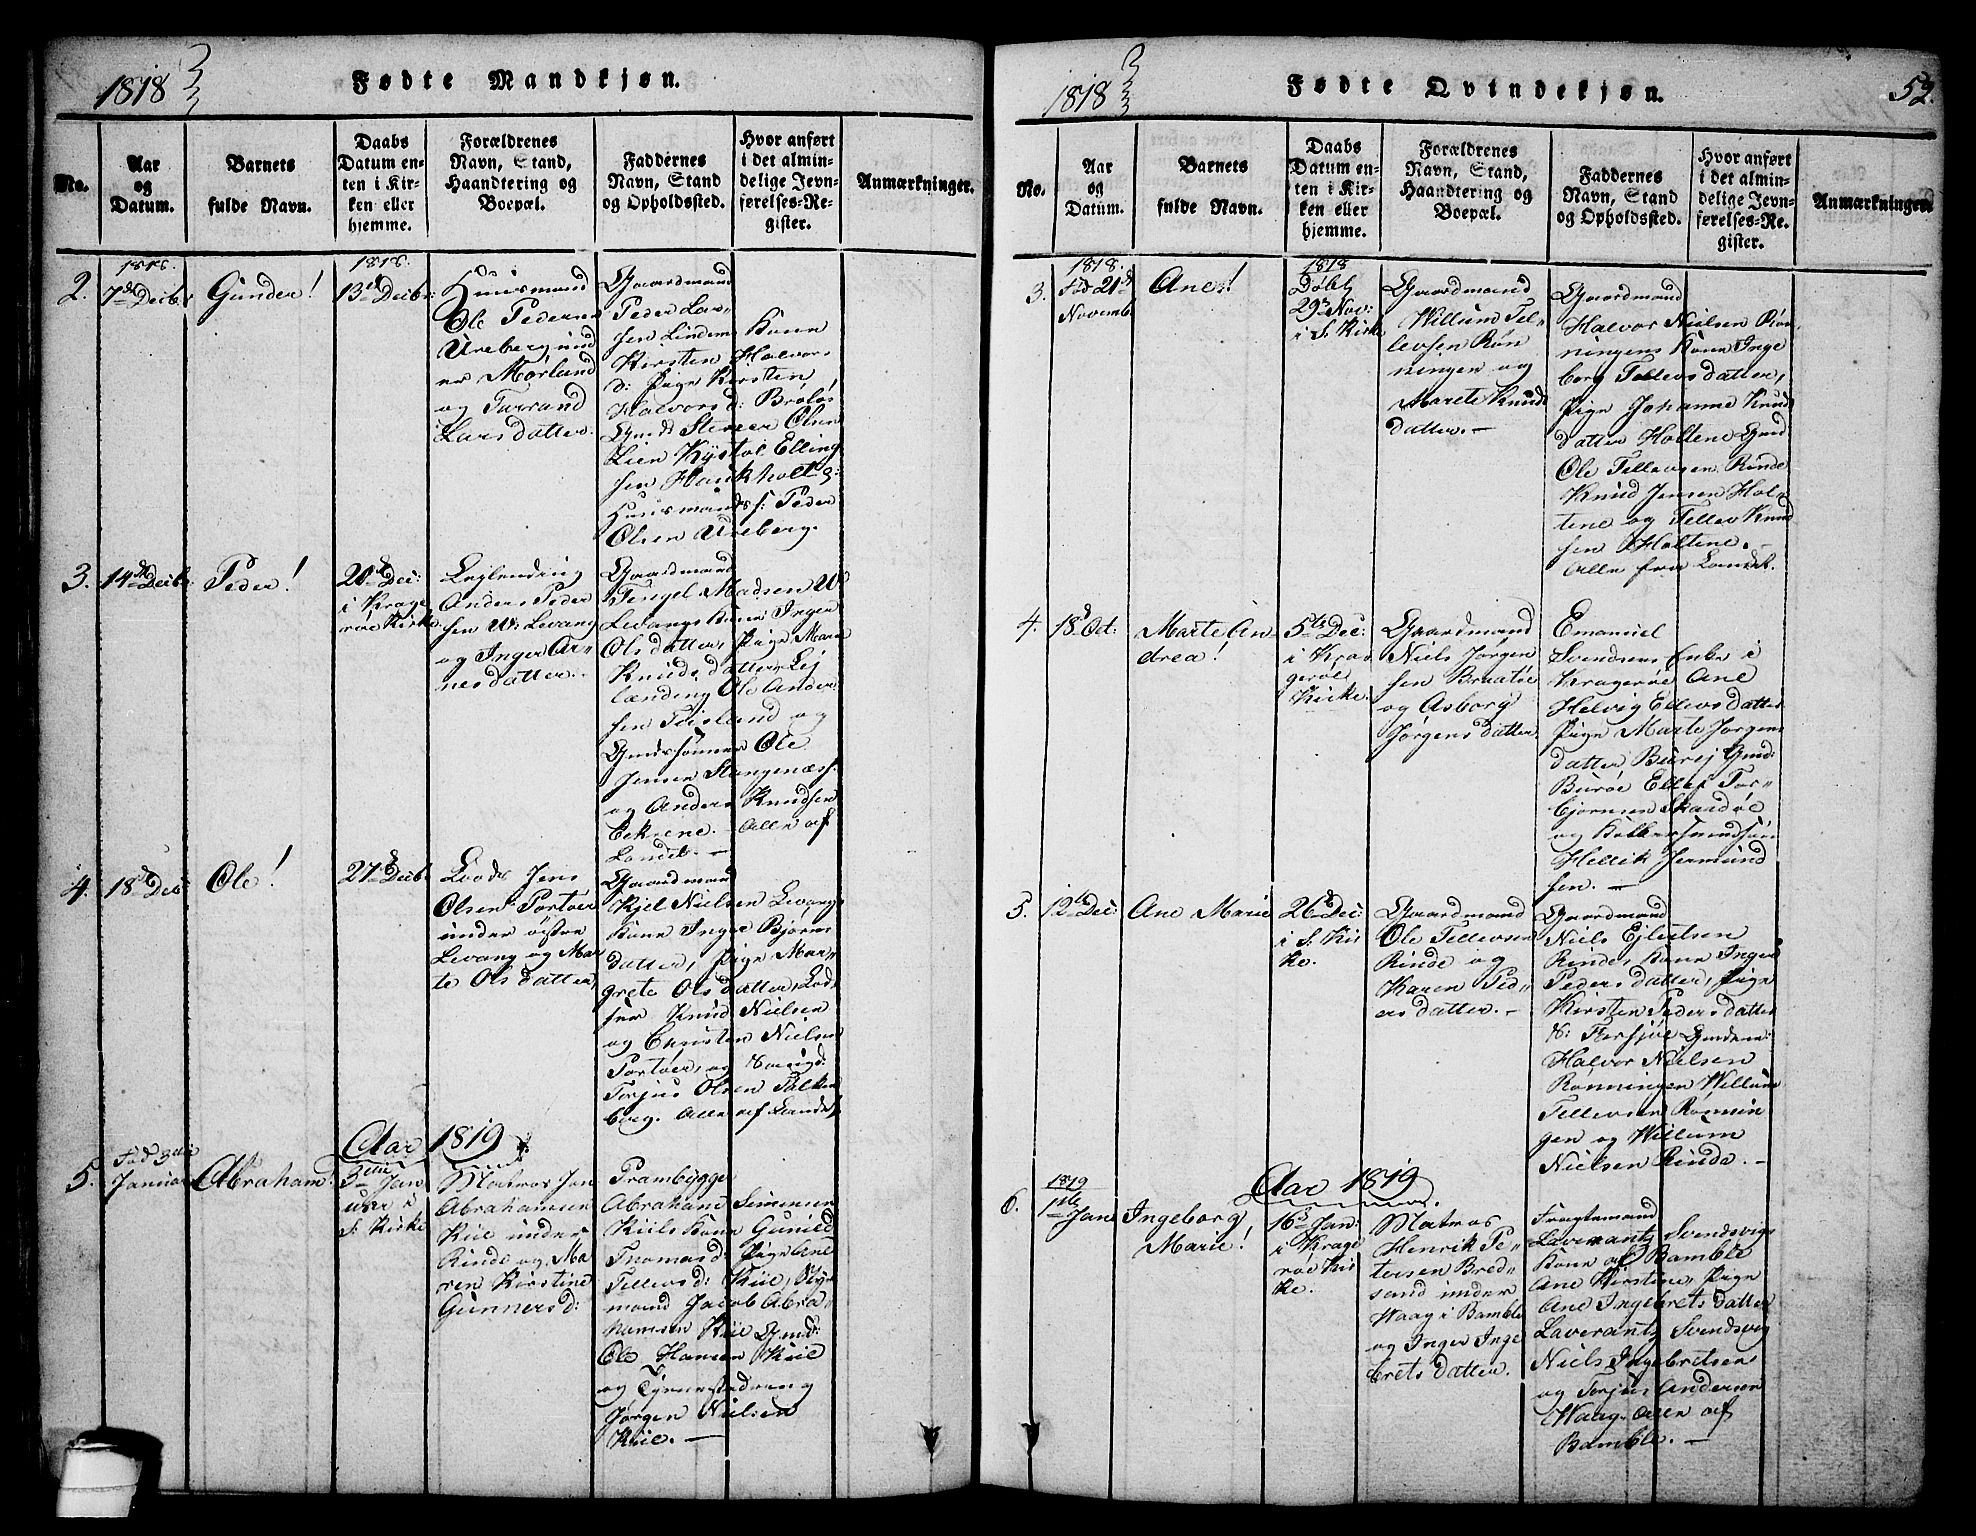 1818
Fødte Mandkjøn.
No.
Aar
og
Datum.
Barnets
fulde Navn.
Daabs
Datum en-
ten i Kir-
ken eller
hjemme.
Forældrenes
Navn, Stand,
Haandtering og
Boepæl.
Faddernes
Navn, Stand
og Opholdssted.
Hvor anført
i det almin-
delige Jevn-
førelses-Re-
gister.
Anmærkninger.
2.
1818.
7de Decbr
Gunder!
1818.
13de Decbr:
Huusmand
Ole Peders
Ureberg und
er Mørland
og Turrand
Larsdatter.
Gaardmand
Peder Lar-
sen Lindem Kone
Kirsten Halvors
d: Pige Kirsten
Halvorsd: Brøløs
Gmds Steneer Olsen
Lien Kystol Elling
sen Haukholt &
Huusmands s: Peder
Olsen Ureberg.
3.
14de Decbr:
Peder!
20de Dec:
i Krage
røe Kirke
Leylending
Anders Peder
sen W: Levang
og Inger Ar-
nesdatter.
Gaardmand
Tengel Madsen W
Levangs Kone Ingen
Olsdatter, Pige Maren
Knudsdatter, Lej
lænding Ole Ander
sen Føisland og
Gmdssønner Ole
Jensen Stangenæs
og Anders Knudsen
Eekene. Alle af
Landet. —
4.
18de Dec
Ole!
27de Decb:
Lods Jens
Olsen Portøer
under østre
Levang og Mar
te Olsdatter,
Gaardmand
Kjel Nielsen Levangs
Kone Inger Bjørns
datter, Pige Mar-
grete Olsdatter, Lod,
ser Knud Nielsen
og Christen Nielsen
Portøer, og
Torjus Olsen Falken
borg. Alle af Landet
Aar 1819
5.
Fød 3die
Januar
Abraham!
3die Jan
uar i
S. Kirke
Matros Jon
Abrahamsen
Kiil under
Rinde og Ma
ren Kirstine
Gunnersd:
Prambygger
Abraham Simensen
Kiils Kone Gunild
Thomasd: Pige Ane
Tellevsd: Kiil, Styr
mand Jacob Abra
hamsen Kiil Gmd:
Ole Hansen Kiil
og
Jørgen Nielsen
Kiil. —
1818
Fødte Qvindekjøn.
52.
No.
Aar
og
Datum.
Barnets
fulde Navn.
Daabs
Datum en-
ten i Kir-
ken eller
hjemme.
Forældrenes
Navn, Stand,
Haandtering og
Boepæl.
Faddernes
Navn, Stand
og Opholdssted.
Hvor anført
i det almin-
delige Jevn-
førelses-Re-
gister.
Anmærkninger.
3.
1818.
Fød 21de
Novemb.
Ane!
1818
Døbt
29de Nov:
i S. Kirke
Gaardmand
Willum Tel-
levsen Røn
ningen og
Marete Knuds
datter. —
Gaardmand
Halvor Nielsen Røn
ningens Kone Inge
borg Tellevsdatter,
Pige Johanne Knuds
datter Holtene Gmd
Ole Tellevsen Rinde
Knud Jensen Hol-
tene og Tellev Knud
sen Holtene. —
Alle fra Landet.
4.
18de Oct:
Marte An
drea!
5te Dec:
i Kra
gerøe
Kirke.
Gaardmand
Niels Jørgen
sen Braatøe
og Asborg
Jørgensdatter
Emanuel
Svendsens Enke i
Kragerøe Ane
Helvig Ellevsdatter
Pige Marte Jørgens
datter Burøe Gmd:
Burøe Ellef Tor-
bjørnsen Skardøe
og
Hellik Jermund
sen. —
5.
12te Dec:
Ane Marie
26de Dec:
i S. Kir
ke.
Gaardmand
Ole Tellevsen
Rinde og
Karen Ped-
ersdatter. —
Gaardmand
Niels Ejlertsen
Rinde, Kone Inger
Pedersdatter, Pige
Kirsten Pedersdatter
Halvor Nielsen
Rønningen Willum
Tellevsen Rønnin
gen og Willum
Nielsen Rinde. —
Aar 1819
6.
1819
1ste Jan
Ingeborg
Marie!
16de Jan:
i Krage
røe Kir
ke.
Matros
Henrik Pe-
tersen Bred
sand under
Waag i Bamble
og Inger Inge
bretsdatter.
Fragtemand
Laverantz Svendsvigs
Kone af Bamble
Ane Kirstine, Pige
Ane Ingebretsdatter
Laverantz Svendsvig
Niels Ingebretsen
og Torjus Andersen
Waag. Alle af
Bamble. —